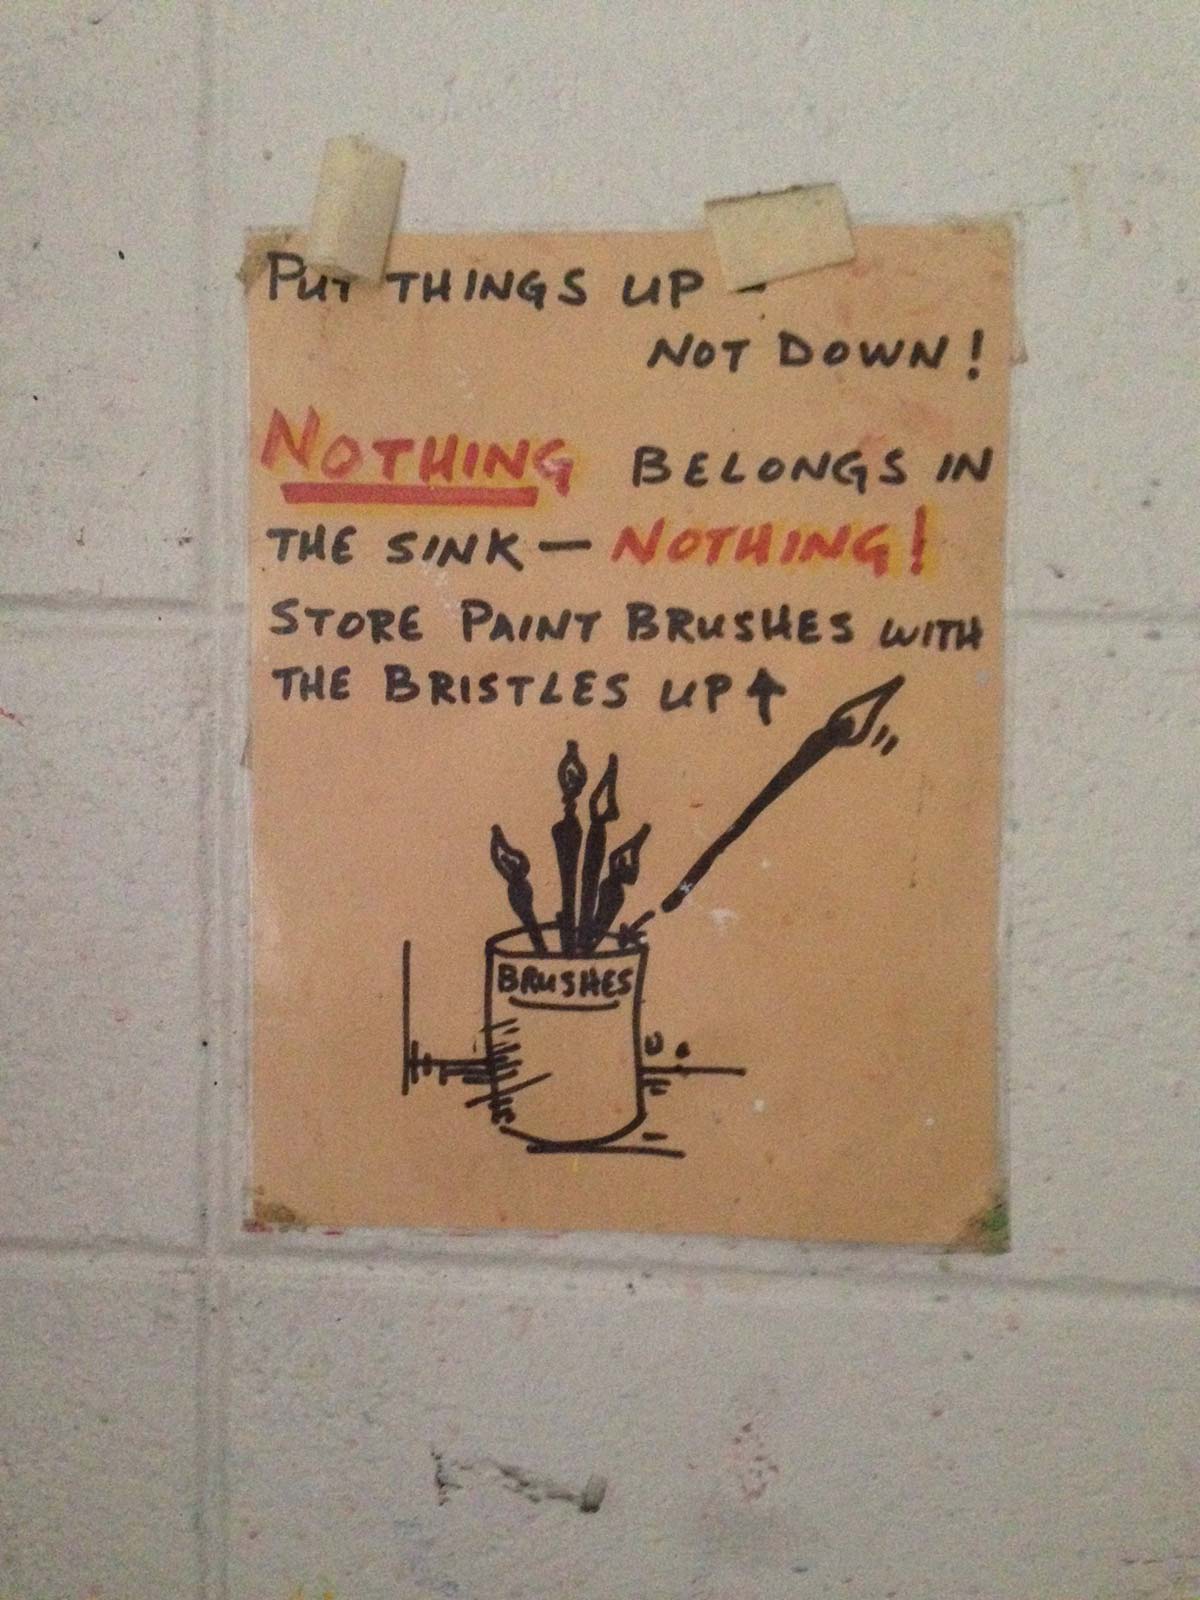 PUT THINGS UP -
NOT DOWN!
NOTHING BELONGS IN
THE SINK — NOTHING!
STORE PAINT BRUSHES WITH
THE BRISTLES UP ↑
BRUSHES